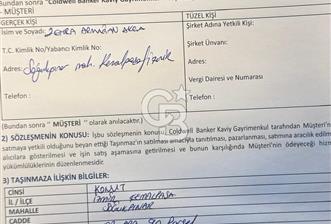 Bundan sonra "Coldwell Banker Kaviy Gayrimenkul
- MÜŞTERİ
GERÇEK KİŞİ
TÜZEL KİŞİ
İsim ve Soyadı:
Şirket Adına Yetkili Kişi:
T.C. Kimlik No/Yabancı Kimlik No:
Şirket Ünvanı:
Adres: mah.
Adres:
Vergi Dairesi ve Numarası
Telefon :
Telefon :
(Bundan sonra " MÜŞTERİ " olarak anılacaktır.)
2) SÖZLEŞMENİN KONUSU: İşbu sözleşmenin konusu, Coldwell Banker Kaviy Gayrimenkul tarafından Müşteri
satmaya yetkili olduğunu beyan ettiği Taşınmaz'ın satılması amacıyla tanıtılması, pazarlanması, satımına aracılık edilm
alıcılara gösterilmesi ve işin satış aşamasına getirilmesi ve bunun karşılığında Müşteri'nin ödeyeceği hizm
yükümlülüklerinin düzenlenmesidir.
3) TAŞINMAZA İLİŞKİN BİLGİLER:
CİNSİ KONUT
İL / İLÇE İZMİR KEMALPAŞA
MAHALLE
CADDE